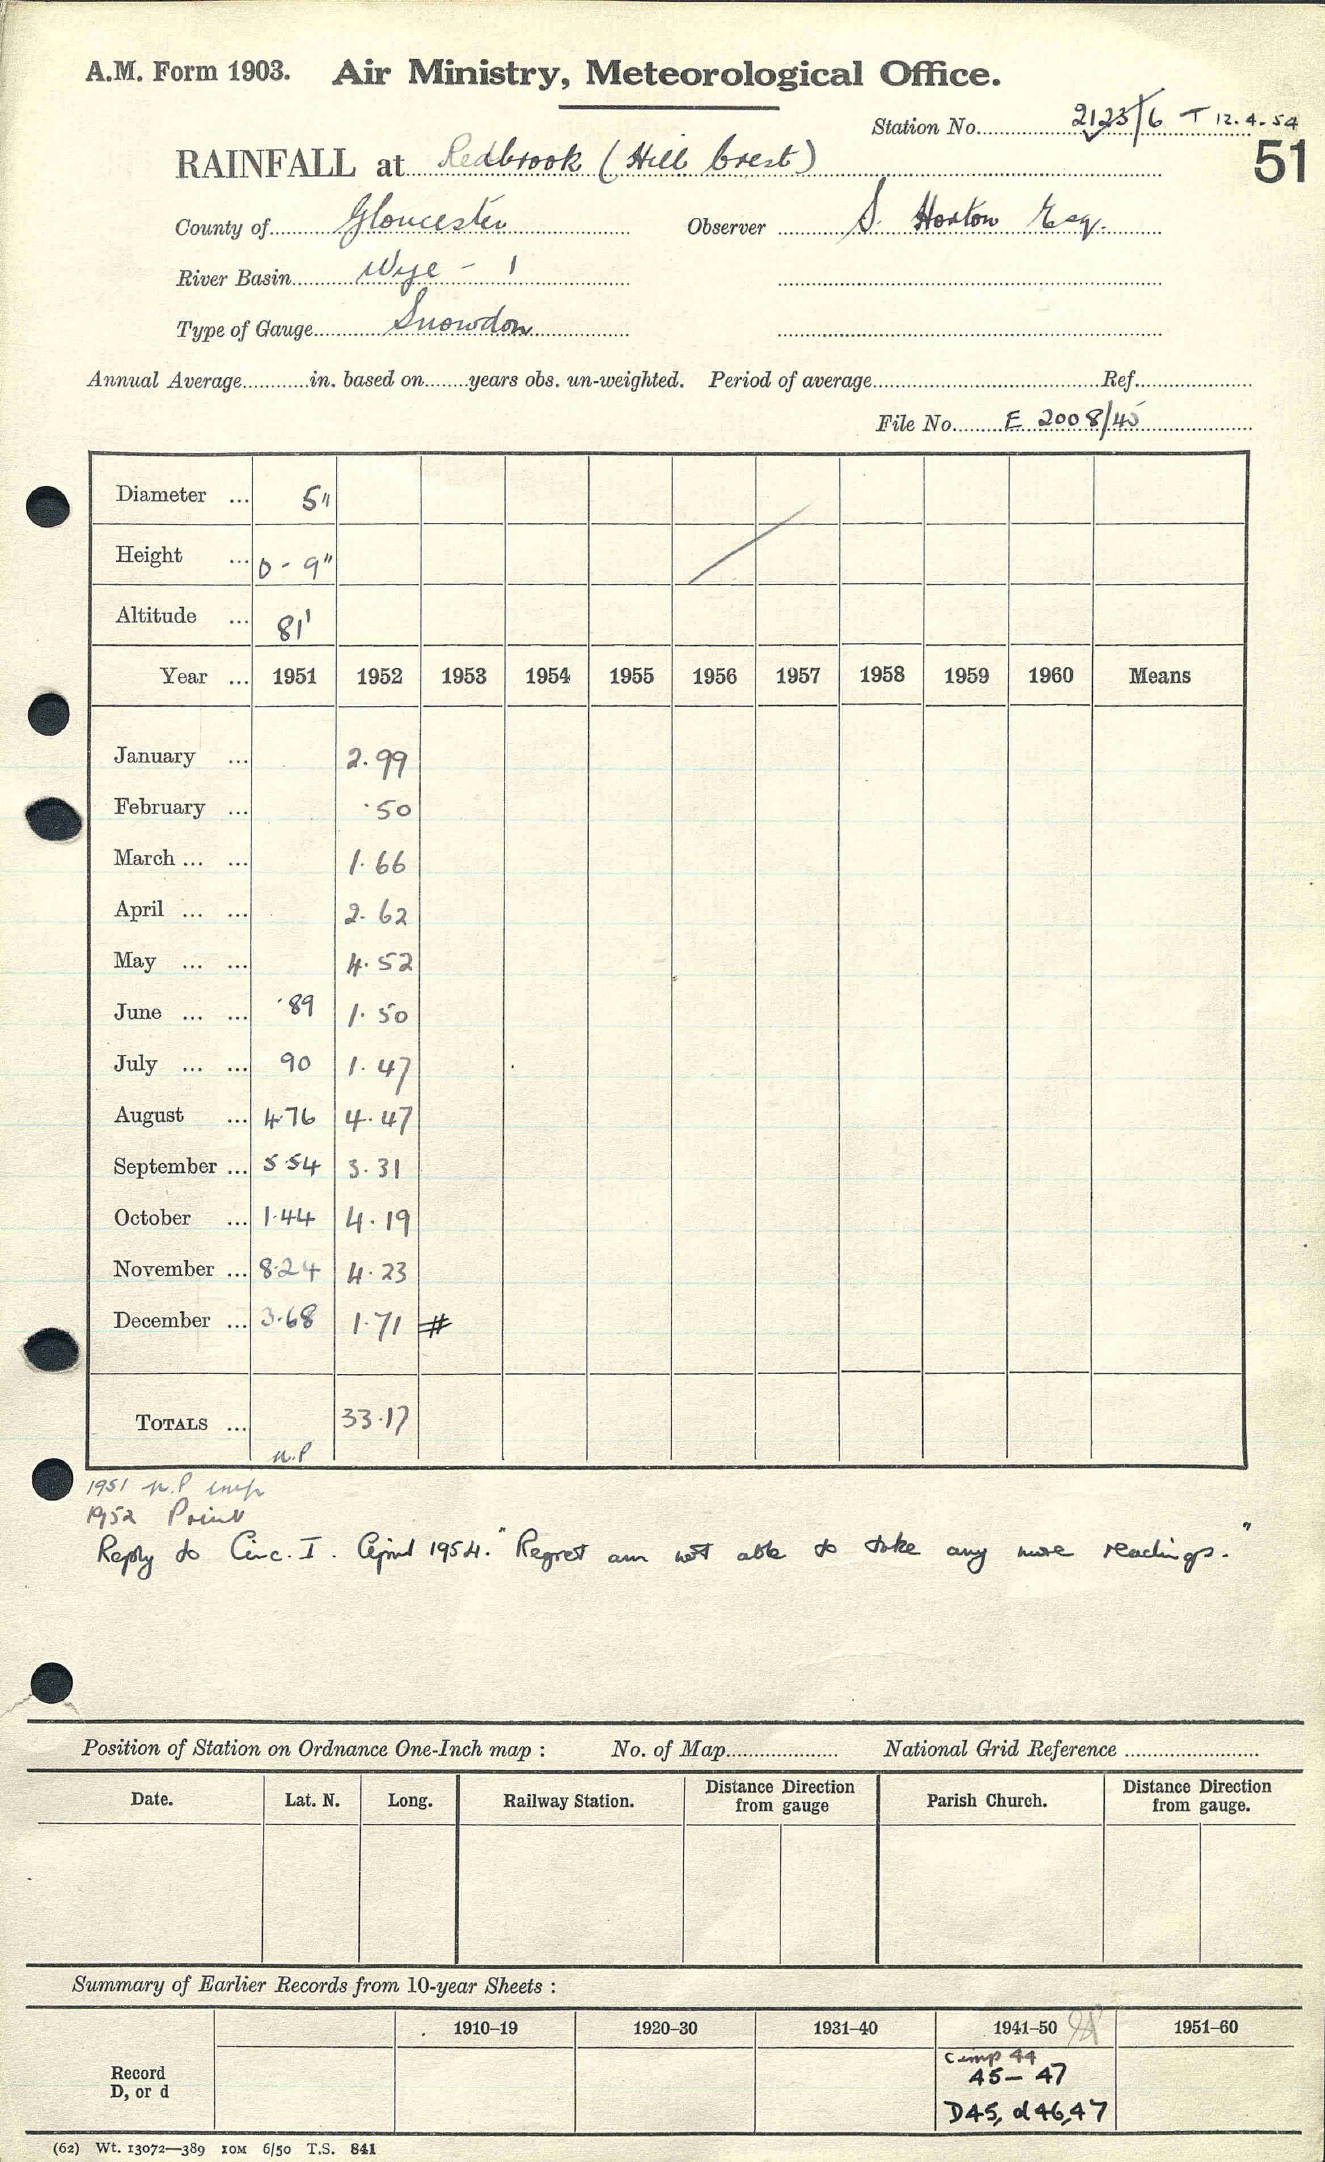 A.M. Form 1903. Air Ministry, Meteorological Office.
Station No. 2123/6 T 12.4.54
51
RAINFALL at Redbrook (Hill Crest)
County of Gloucester Observer S. Horton Esq.
River Basin Wye - 1
Type of Gauge Snowdon
Annual Average in. based on years obs. un-weighted. Period of average Ref.
File No. E 2008/45
Diameter ... 5"
Height ... 0 - 9"
Altitude ... 81'
Year ... 1951 1952 1953 1954 1955 1956 1957 1958 1959 1960 Means
January ... 2.99
February ... .50
March ... ... 1.66
April ... ... 2.62
May ... ... 4.52
June ... ... .89 1.50
July ... ... 90 1.47
August ... 4.76 4.47
September ... 5.54 3.31
October ... 1.44 4.19
November ... 8.24 4.23
December ... 3.68 1.71 #
TOTALS ... 33.17
n.P
1951 n.P inp
1952 Print
Reply to Circ. I. April 1954. "Regret am not able to take any more readings."
Position of Station on Ordnance One-Inch map : No. of Map National Grid Reference
Date. Lat. N. Long. Railway Station. Distance Direction from gauge Parish Church. Distance Direction from gauge.
Summary of Earlier Records from 10-year Sheets :
1910–19 1920–30 1931–40 1941–50 1951–60
Record D, or d
Comp 44
45 – 47
D45, d46,47
(62) Wt. 13072—389 10M 6/50 T.S. 841